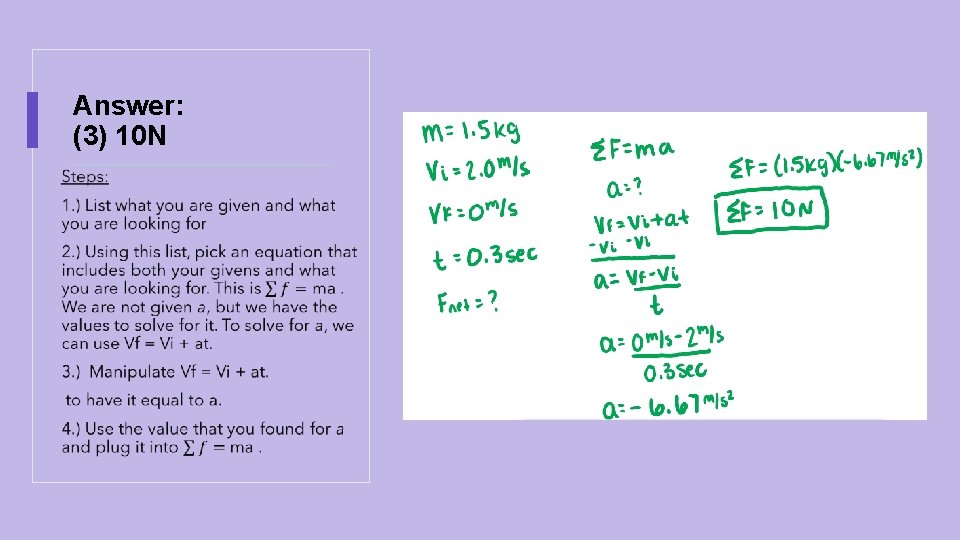 Answer:
(3) 10N
Steps:
1.) List what you are given and what
you are looking for
2.) Using this list, pick an equation that
includes both your givens and what
you are looking for. This is ∑ f = ma .
We are not given a, but we have the
values to solve for it. To solve for a, we
can use Vf = Vi + at.
3.) Manipulate Vf = Vi + at.
to have it equal to a.
4.) Use the value that you found for a
and plug it into ∑ f = ma .
m=1.5kg
Vi=2.0m/s
Vf=0m/s
t=0.3sec
Fnet=?
ΣF=ma
a=?
Vf=Vi+at
-Vi -Vi
a=Vf-Vi
t
a=0m/s-2m/s
0.3sec
a=-6.67m/s²
ΣF=(1.5kg)(-6.67m/s²)
ΣF=10N